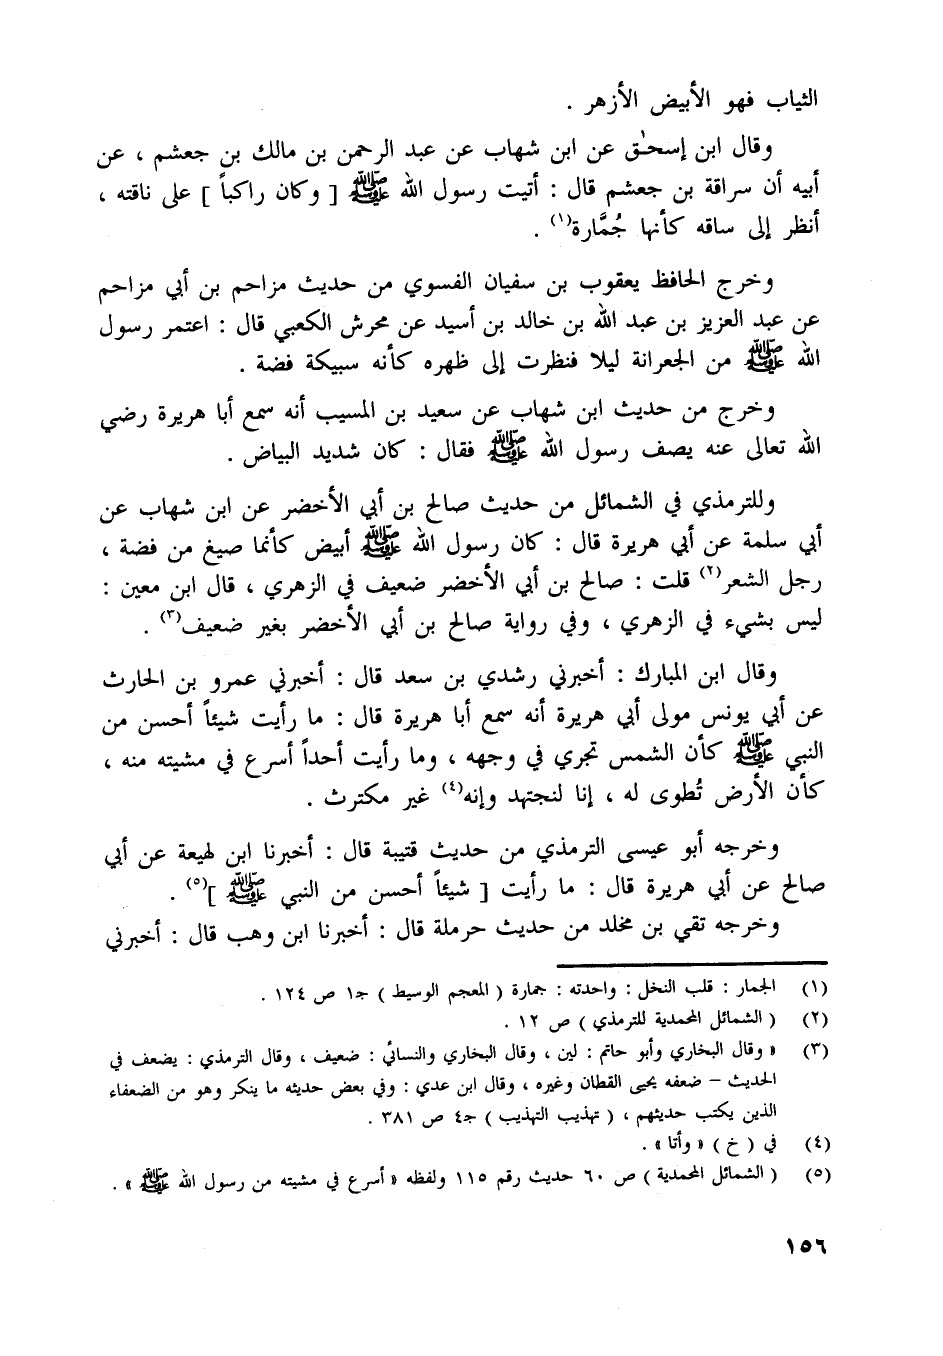 الثياب فهو الأبيض الأزهر .
وقال ابن إسحـٰق عن ابن شهاب عن عبد الرحمن بن مالك بن جعشم ، عن
أبيه أن سراقة بن جعشم قال : أتيت رسول الله ﷺ [ وكان راكباً ] على ناقته ،
أنظر إلى ساقه كأنها جُمَّارة(١) .
وخرج الحافظ يعقوب بن سفيان الفسوي من حديث مزاحم بن أبي مزاحم
عن عبد العزيز بن عبد الله بن خالد بن أسيد عن محرش الكعبي قال : اعتمر رسول
الله ﷺ من الجعرانة ليلا فنظرت إلى ظهره كأنه سبيكة فضة .
وخرج من حديث ابن شهاب عن سعيد بن المسيب أنه سمع أبا هريرة رضي
الله تعالى عنه يصف رسول الله ﷺ فقال : كان شديد البياض .
وللترمذي في الشمائل من حديث صالح بن أبي الأخضر عن ابن شهاب عن
أبي سلمة عن أبي هريرة قال : كان رسول الله ﷺ أبيض كأنما صيغ من فضة ،
رجل الشعر(٢) قلت : صالح بن أبي الأخضر ضعيف في الزهري ، قال ابن معين :
ليس بشيء في الزهري ، وفي رواية صالح بن أبي الأخضر بغير ضعيف(٣) .
وقال ابن المبارك : أخبرني رشدي بن سعد قال : أخبرني عمرو بن الحارث
عن أبي يونس مولى أبي هريرة أنه سمع أبا هريرة قال : ما رأيت شيئاً أحسن من
النبي ﷺ كأن الشمس تجري في وجهه ، وما رأيت أحداً أسرع في مشيته منه ،
كأن الأرض تُطوى له ، إنا لنجتهد وإنه(٤) غير مكترث .
وخرجه أبو عيسى الترمذي من حديث قتيبة قال : أخبرنا ابن لهيعة عن أبي
صالح عن أبي هريرة قال : ما رأيت [ شيئاً أحسن من النبي ﷺ ](٥) .
وخرجه تقي بن مخلد من حديث حرملة قال : أخبرنا ابن وهب قال : أخبرني
(١) الجمار : قلب النخل : واحدته : جمارة ( المعجم الوسيط ) جـ١ ص ١٢٤ .
(٢) ( الشمائل المحمدية للترمذي ) ص ١٢ .
(٣) « وقال البخاري وأبو حاتم : لين ، وقال البخاري والنسائي : ضعيف ، وقال الترمذي : يضعف في
الحديث – ضعفه يحيى القطان وغيره ، وقال ابن عدي : وفي بعض حديثه ما ينكر وهو من الضعفاء
الذين يكتب حديثهم ، ( تهذيب التهذيب ) جـ٤ ص ٣٨١ .
(٤) في ( خ ) « وأتا » .
(٥) ( الشمائل المحمدية ) ص ٦٠ حديث رقم ١١٥ ولفظه « أسرع في مشيته من رسول الله ﷺ » .
١٥٦